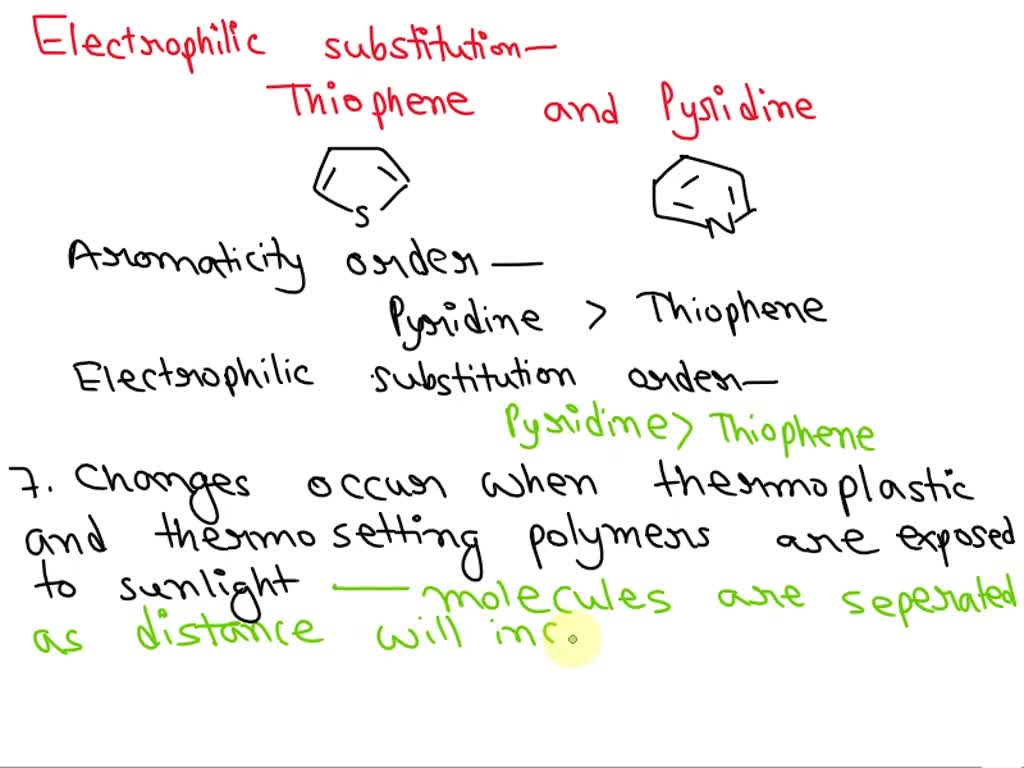 Electrophilic substitution—
Thiophene and Pyridine
S
N
Aromaticity order —
Pyridine > Thiophene
Electrophilic substitution order—
Pyridine > Thiophene
7. Changes occur when thermoplastic
and thermosetting polymers are exposed
to sunlight — molecules are seperated
as distance will inc